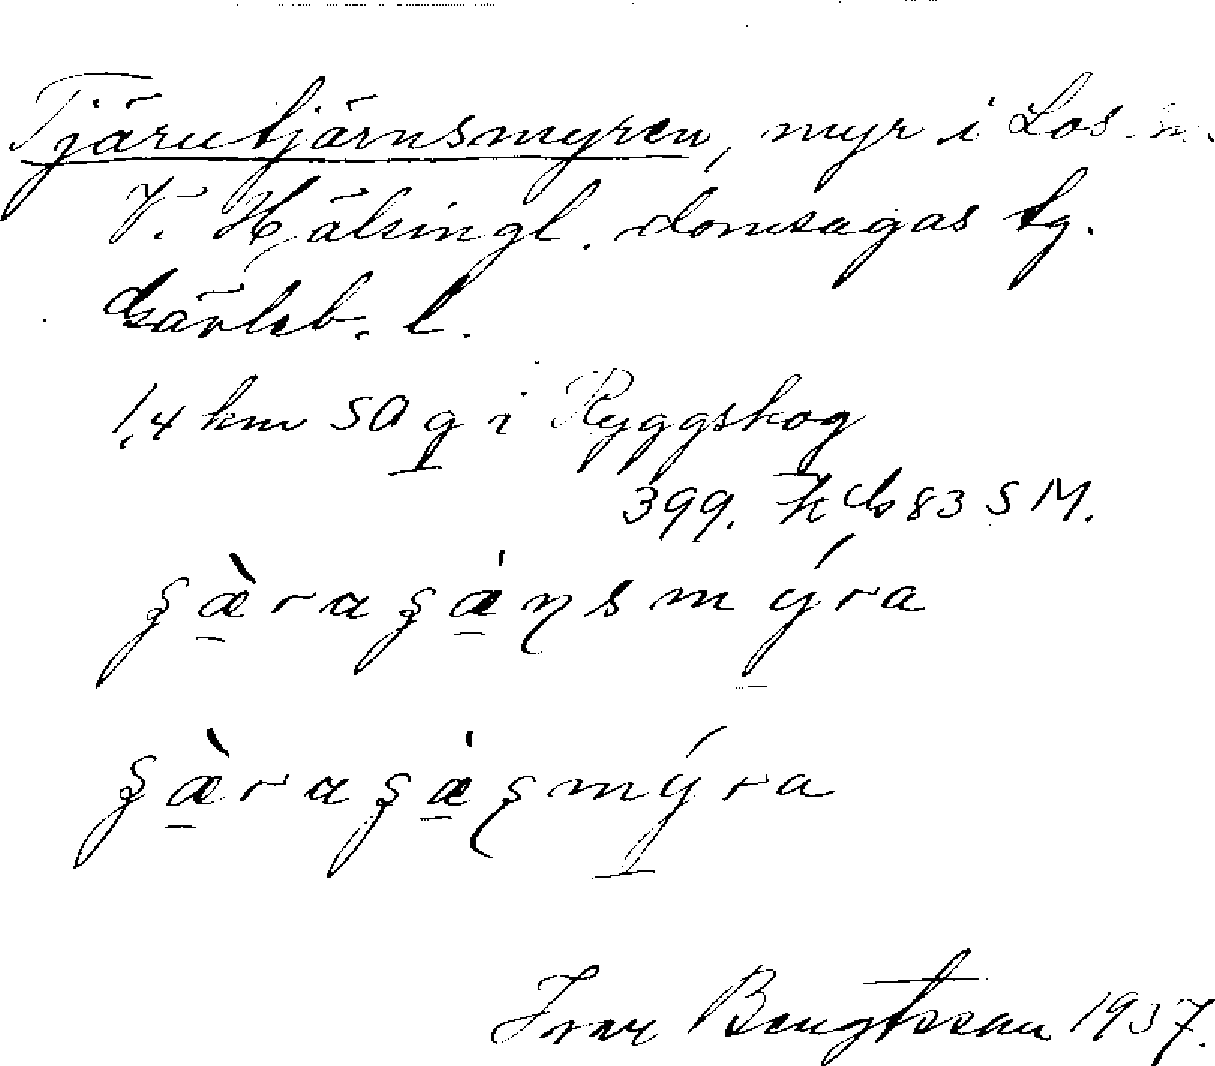 Tjärutjärnsmyren, myr i Los sn.
V. Hälsingl. domsagas tg.
Gävleb. l.
1,4 km SO g i Ryggskog
399. K cb 83 S M.
ʂæ̀raʂǽɳsmýra
ʂæ̀raʂǽʂmýra
Ivar Bengtsson 1937.